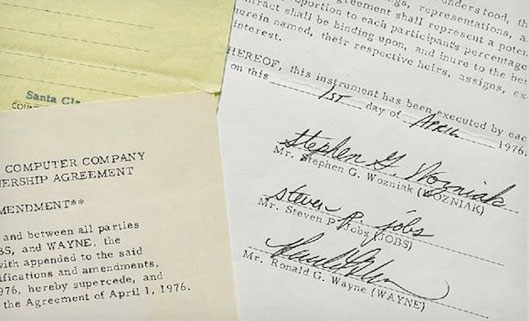 Santa Cl
COMPUTER COMPANY
ERSHIP AGREEMENT
MENDMENT**
and between all parties
BS, and WAYNE, the
with appended to the said
ifications and amendments,
976, hereby supercede, and
the Agreement of April 1, 1976.
ings, representations, a
greement shall represent a poten
proportion to each participant's percentage
tract shall be binding upon, and inure to the ber
herein named, their respective heirs, assigns, ex
HEREOF, this instrument has been executed by each
on this 1ST day of APRIL 1976.
Stephen G. Wozniak
Mr. Stephen G. Wozniak (WOZNIAK)
steven p. jobs
Mr. Steven P. Jobs (JOBS)
Mr. Ronald G. Wayne (WAYNE)